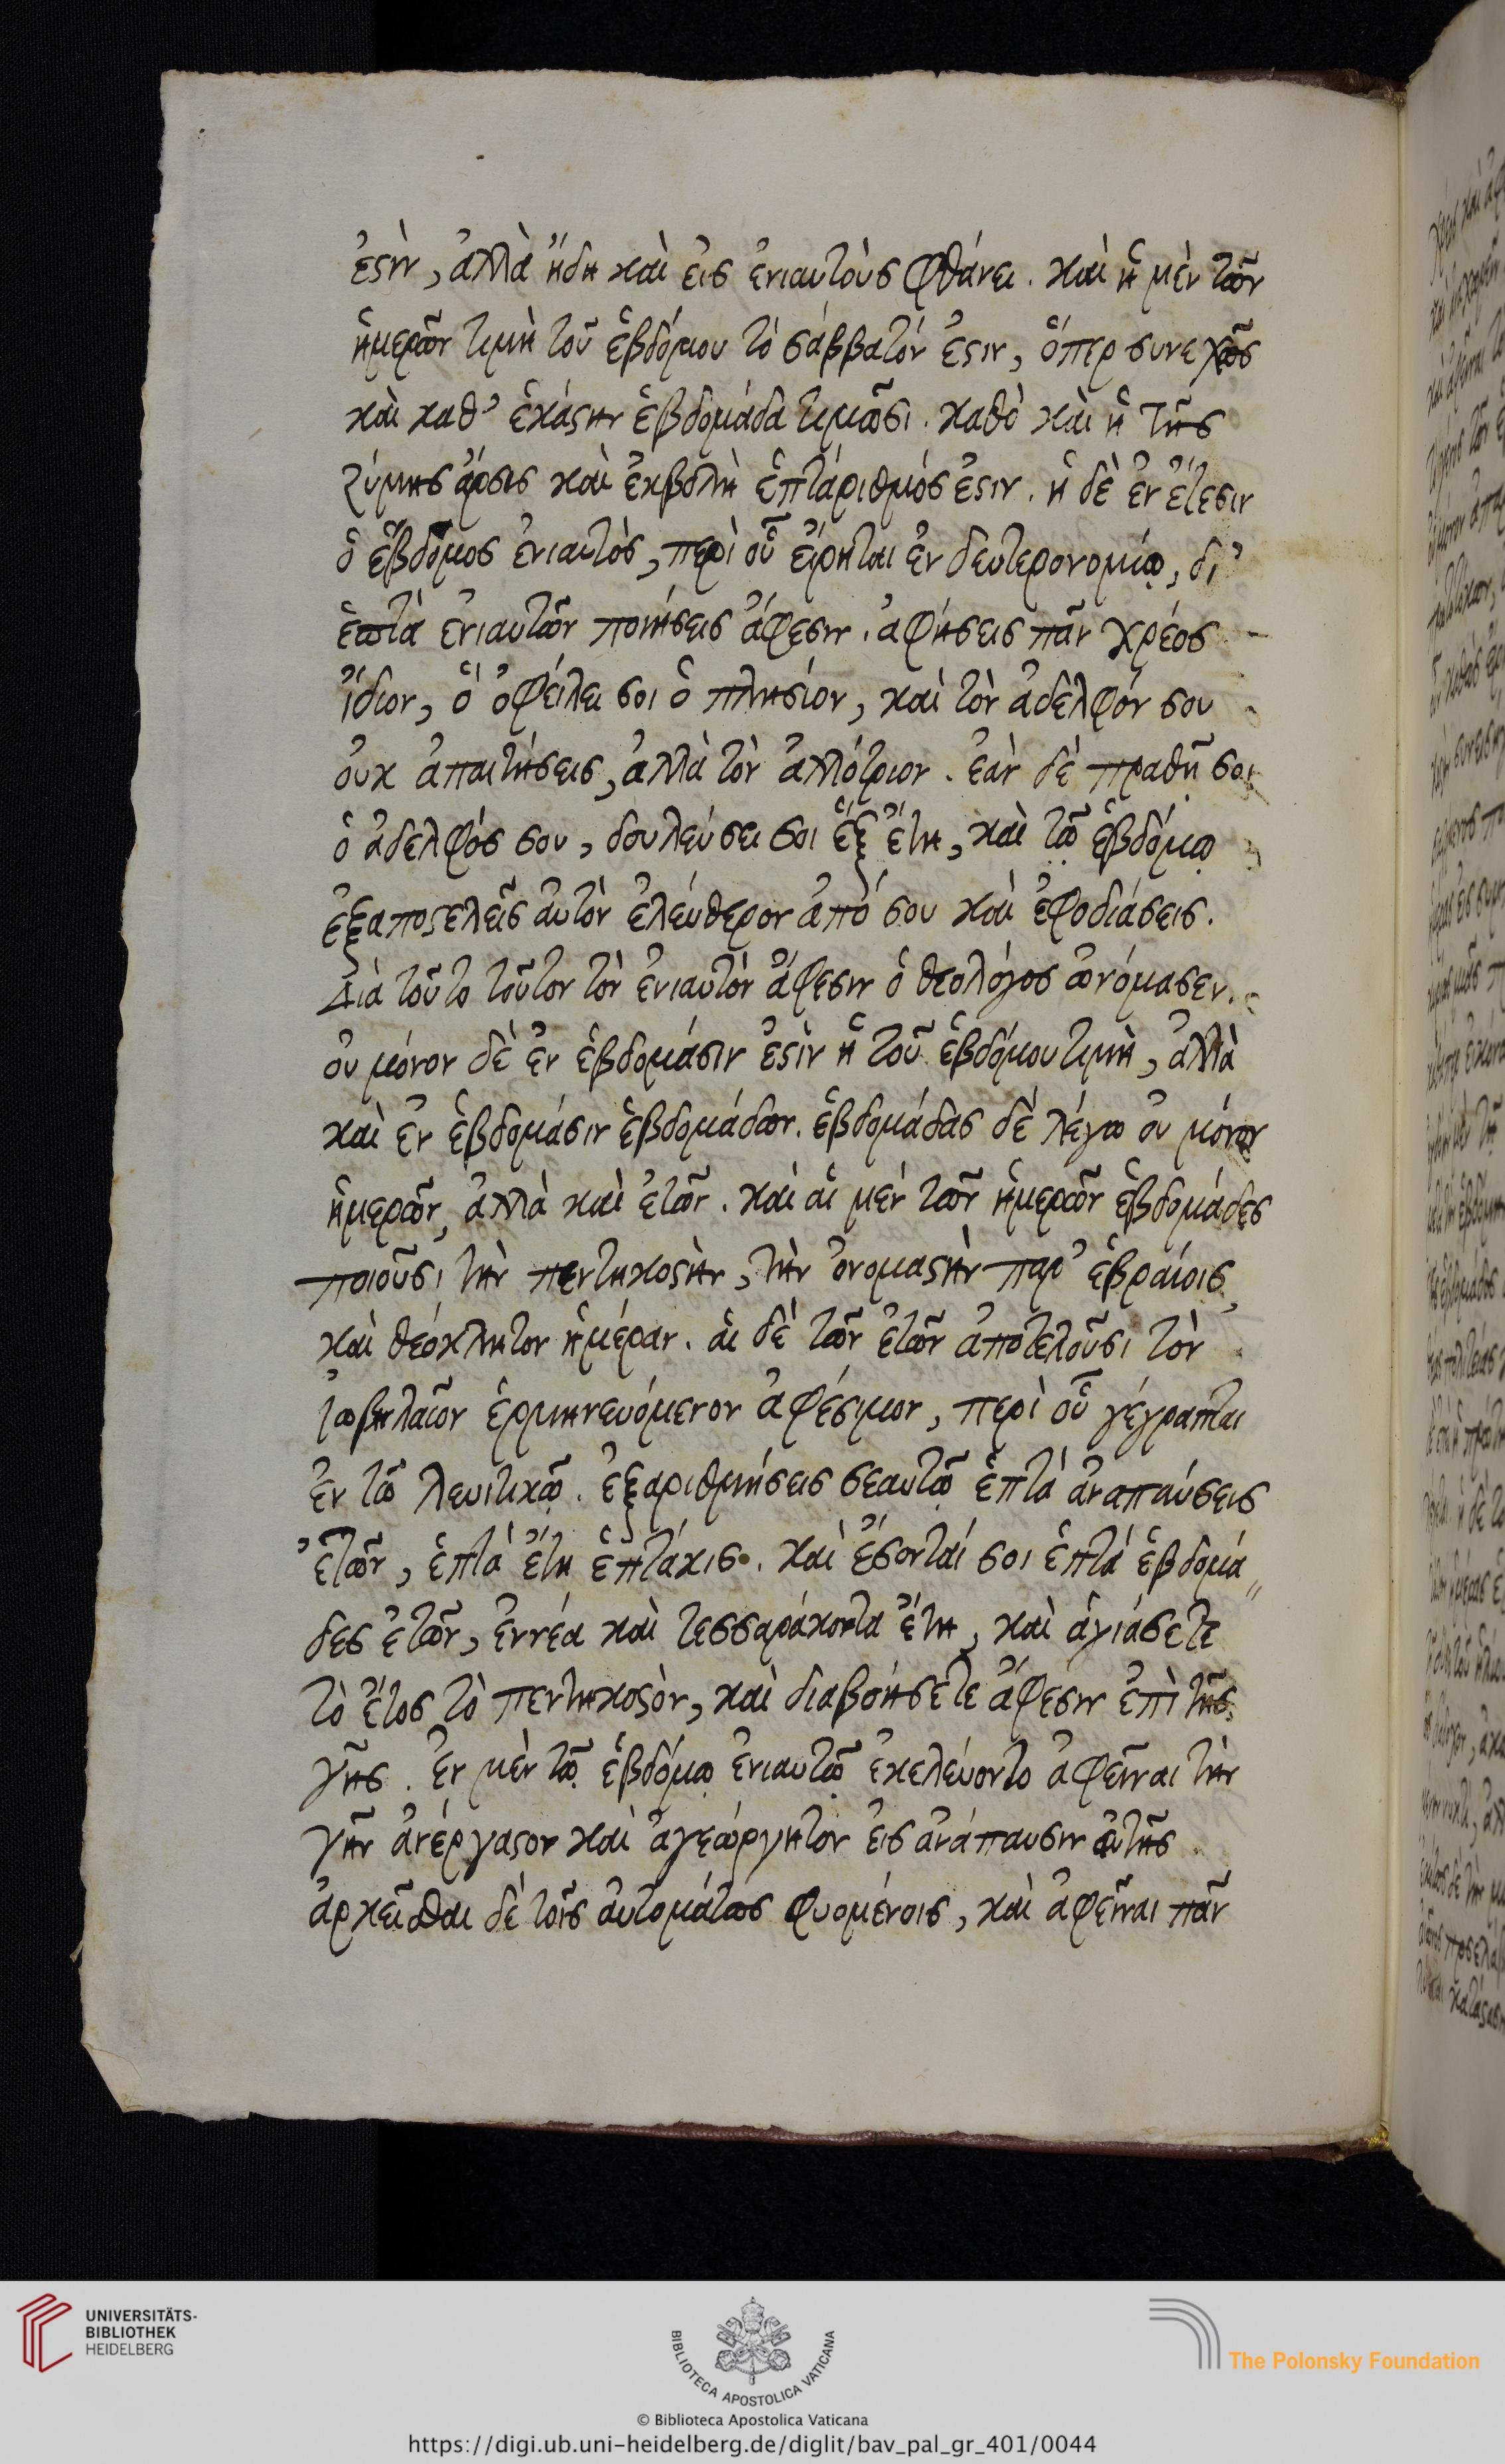 ἐστὶν, ἀλλὰ ἤδη καὶ εἰς ἐνιαυτοὺς φθάνει. καὶ ἡ μὲν τῶν
ἡμερῶν τιμὴ τοῦ ἑβδόμου τὸ σάββατόν ἐστιν, ὅπερ συνεχῶς
καὶ καθ' ἑκάστην ἑβδομάδα τιμῶσι. καθὸ καὶ ἡ τῆς
ζύμης ἄρσις καὶ ἐκβολὴ ἑπτάριθμός ἐστιν. ἡ δὲ ἐν ἔτεσιν
ὁ ἕβδομος ἐνιαυτὸς, περὶ οὗ εἴρηται ἐν δευτερονομίῳ, δι'
ἑπτὰ ἐνιαυτῶν ποιήσεις ἄφεσιν. ἀφήσεις πᾶν χρέος
ἴδιον, ὃ ὀφείλει σοι ὁ πλησίον, καὶ τὸν ἀδελφόν σου
οὐκ ἀπαιτήσεις, ἀλλὰ τὸν ἀλλότριον. ἐὰν δὲ πραθῆ σοι
ὁ ἀδελφός σου, δουλεύσει σοι ἓξ ἔτη, καὶ τῷ ἑβδόμῳ
ἐξαποστελεῖς αὐτὸν ἐλεύθερον ἀπό σου καὶ ἐφοδιάσεις.
Διὰ τοῦτο τοῦτον τὸν ἐνιαυτὸν ἄφεσιν ὁ θεολόγος ὠνόμασεν.
οὐ μόνον δὲ ἐν ἑβδομάσιν ἐστὶν ἡ τοῦ ἑβδόμου τιμὴ, ἀλλὰ
καὶ ἐν ἑβδομάσιν ἑβδομάδων. ἑβδομάδας δὲ λέγω οὐ μόνον
ἡμερῶν, ἀλλὰ καὶ ἐτῶν. καὶ αἱ μὲν τῶν ἡμερῶν ἑβδομάδες
ποιοῦσι τὴν πεντηκοστὴν, τὴν ὀνομαστὴν παρ' ἑβραίοις
καὶ θεόκλητον ἡμέραν. αἱ δὲ τῶν ἐτῶν ἀποτελοῦσι τὸν
ἰωβηλαῖον ἑρμηνευόμενον ἀφέσιμον, περὶ οὗ γέγραπται
ἐν τῷ λευιτικῷ. ἐξαριθμήσεις σεαυτῷ ἑπτὰ ἀναπαύσεις
ἐτῶν, ἑπτὰ ἔτη ἑπτάκις. καὶ ἔσονταί σοι ἑπτὰ ἑβδομά„
δες ἐτῶν, ἐννέα καὶ τεσσαράκοντα ἔτη, καὶ ἁγιάσετε
τὸ ἔτος τὸ πεντηκοστὸν, καὶ διαβοήσετε ἄφεσιν ἐπὶ τῆς
γῆς. ἐν μὲν τῷ ἑβδόμῳ ἐνιαυτῷ ἐκελεύοντο ἀφεῖναι τὴν
γῆν ἀνέργαστον καὶ ἀγεώργητον εἰς ἀνάπαυσιν αὐτῆς
ἀρκεῖσθαι δὲ τοῖς αὐτομάτως φυομένοις, καὶ ἀφεῖναι πᾶν
UNIVERSITÄTS-
BIBLIOTHEK
HEIDELBERG
BIBLIOTECA APOSTOLICA VATICANA
The Polonsky Foundation
© Biblioteca Apostolica Vaticana
https://digi.ub.uni-heidelberg.de/diglit/bav_pal_gr_401/0044